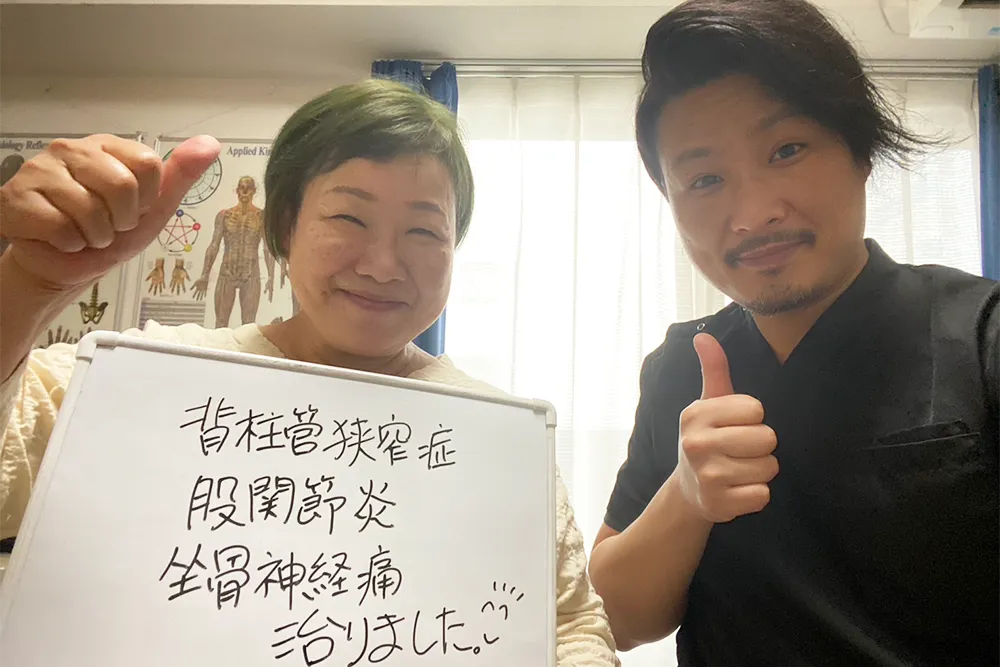 Applied Ki
背柱管狭窄症
股関節炎
坐骨神経痛
治りました。